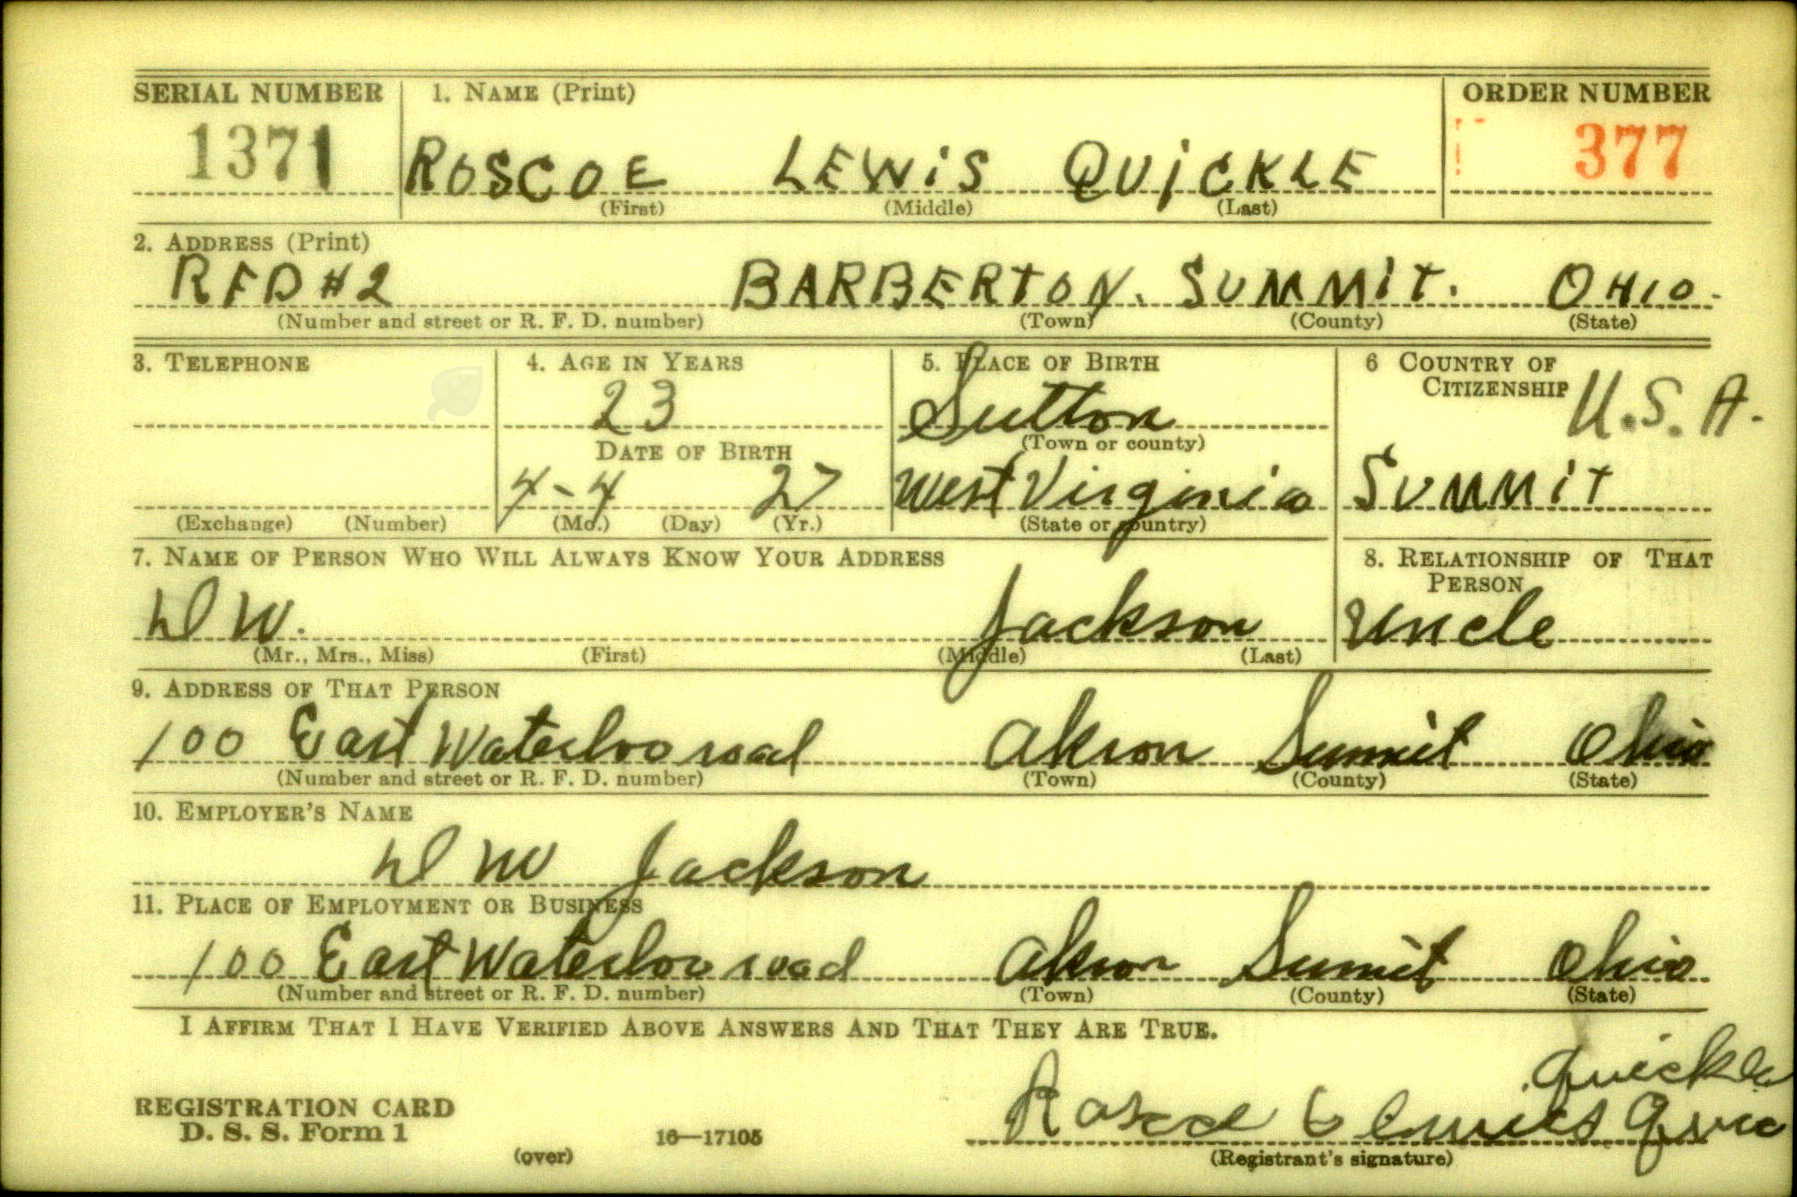 SERIAL NUMBER 1. NAME (Print) ORDER NUMBER
1371 ROSCOE LEWIS QUICKLE 377
(First) (Middle) (Last)
2. ADDRESS (Print)
RFD #2 BARBERTON. SUMMIT. OHIO.
(Number and street or R. F. D. number) (Town) (County) (State)
3. TELEPHONE 4. AGE IN YEARS 5. PLACE OF BIRTH 6 COUNTRY OF CITIZENSHIP
23 Sutton U.S.A.
DATE OF BIRTH (Town or county)
4-4 27 West Virginia SUMMIT
(Exchange) (Number) (Mo.) (Day) (Yr.) (State or country)
7. NAME OF PERSON WHO WILL ALWAYS KNOW YOUR ADDRESS 8. RELATIONSHIP OF THAT PERSON
D W. Jackson Uncle
(Mr., Mrs., Miss) (First) (Middle) (Last)
9. ADDRESS OF THAT PERSON
100 East Waterloo road Akron Summit Ohio
(Number and street or R. F. D. number) (Town) (County) (State)
10. EMPLOYER'S NAME
D W Jackson
11. PLACE OF EMPLOYMENT OR BUSINESS
100 East Waterloo road Akron Summit Ohio
(Number and street or R. F. D. number) (Town) (County) (State)
I AFFIRM THAT I HAVE VERIFIED ABOVE ANSWERS AND THAT THEY ARE TRUE.
Quickle
REGISTRATION CARD
D. S. S. Form 1
Roscoe
(over) 16—17105 (Registrant's signature)